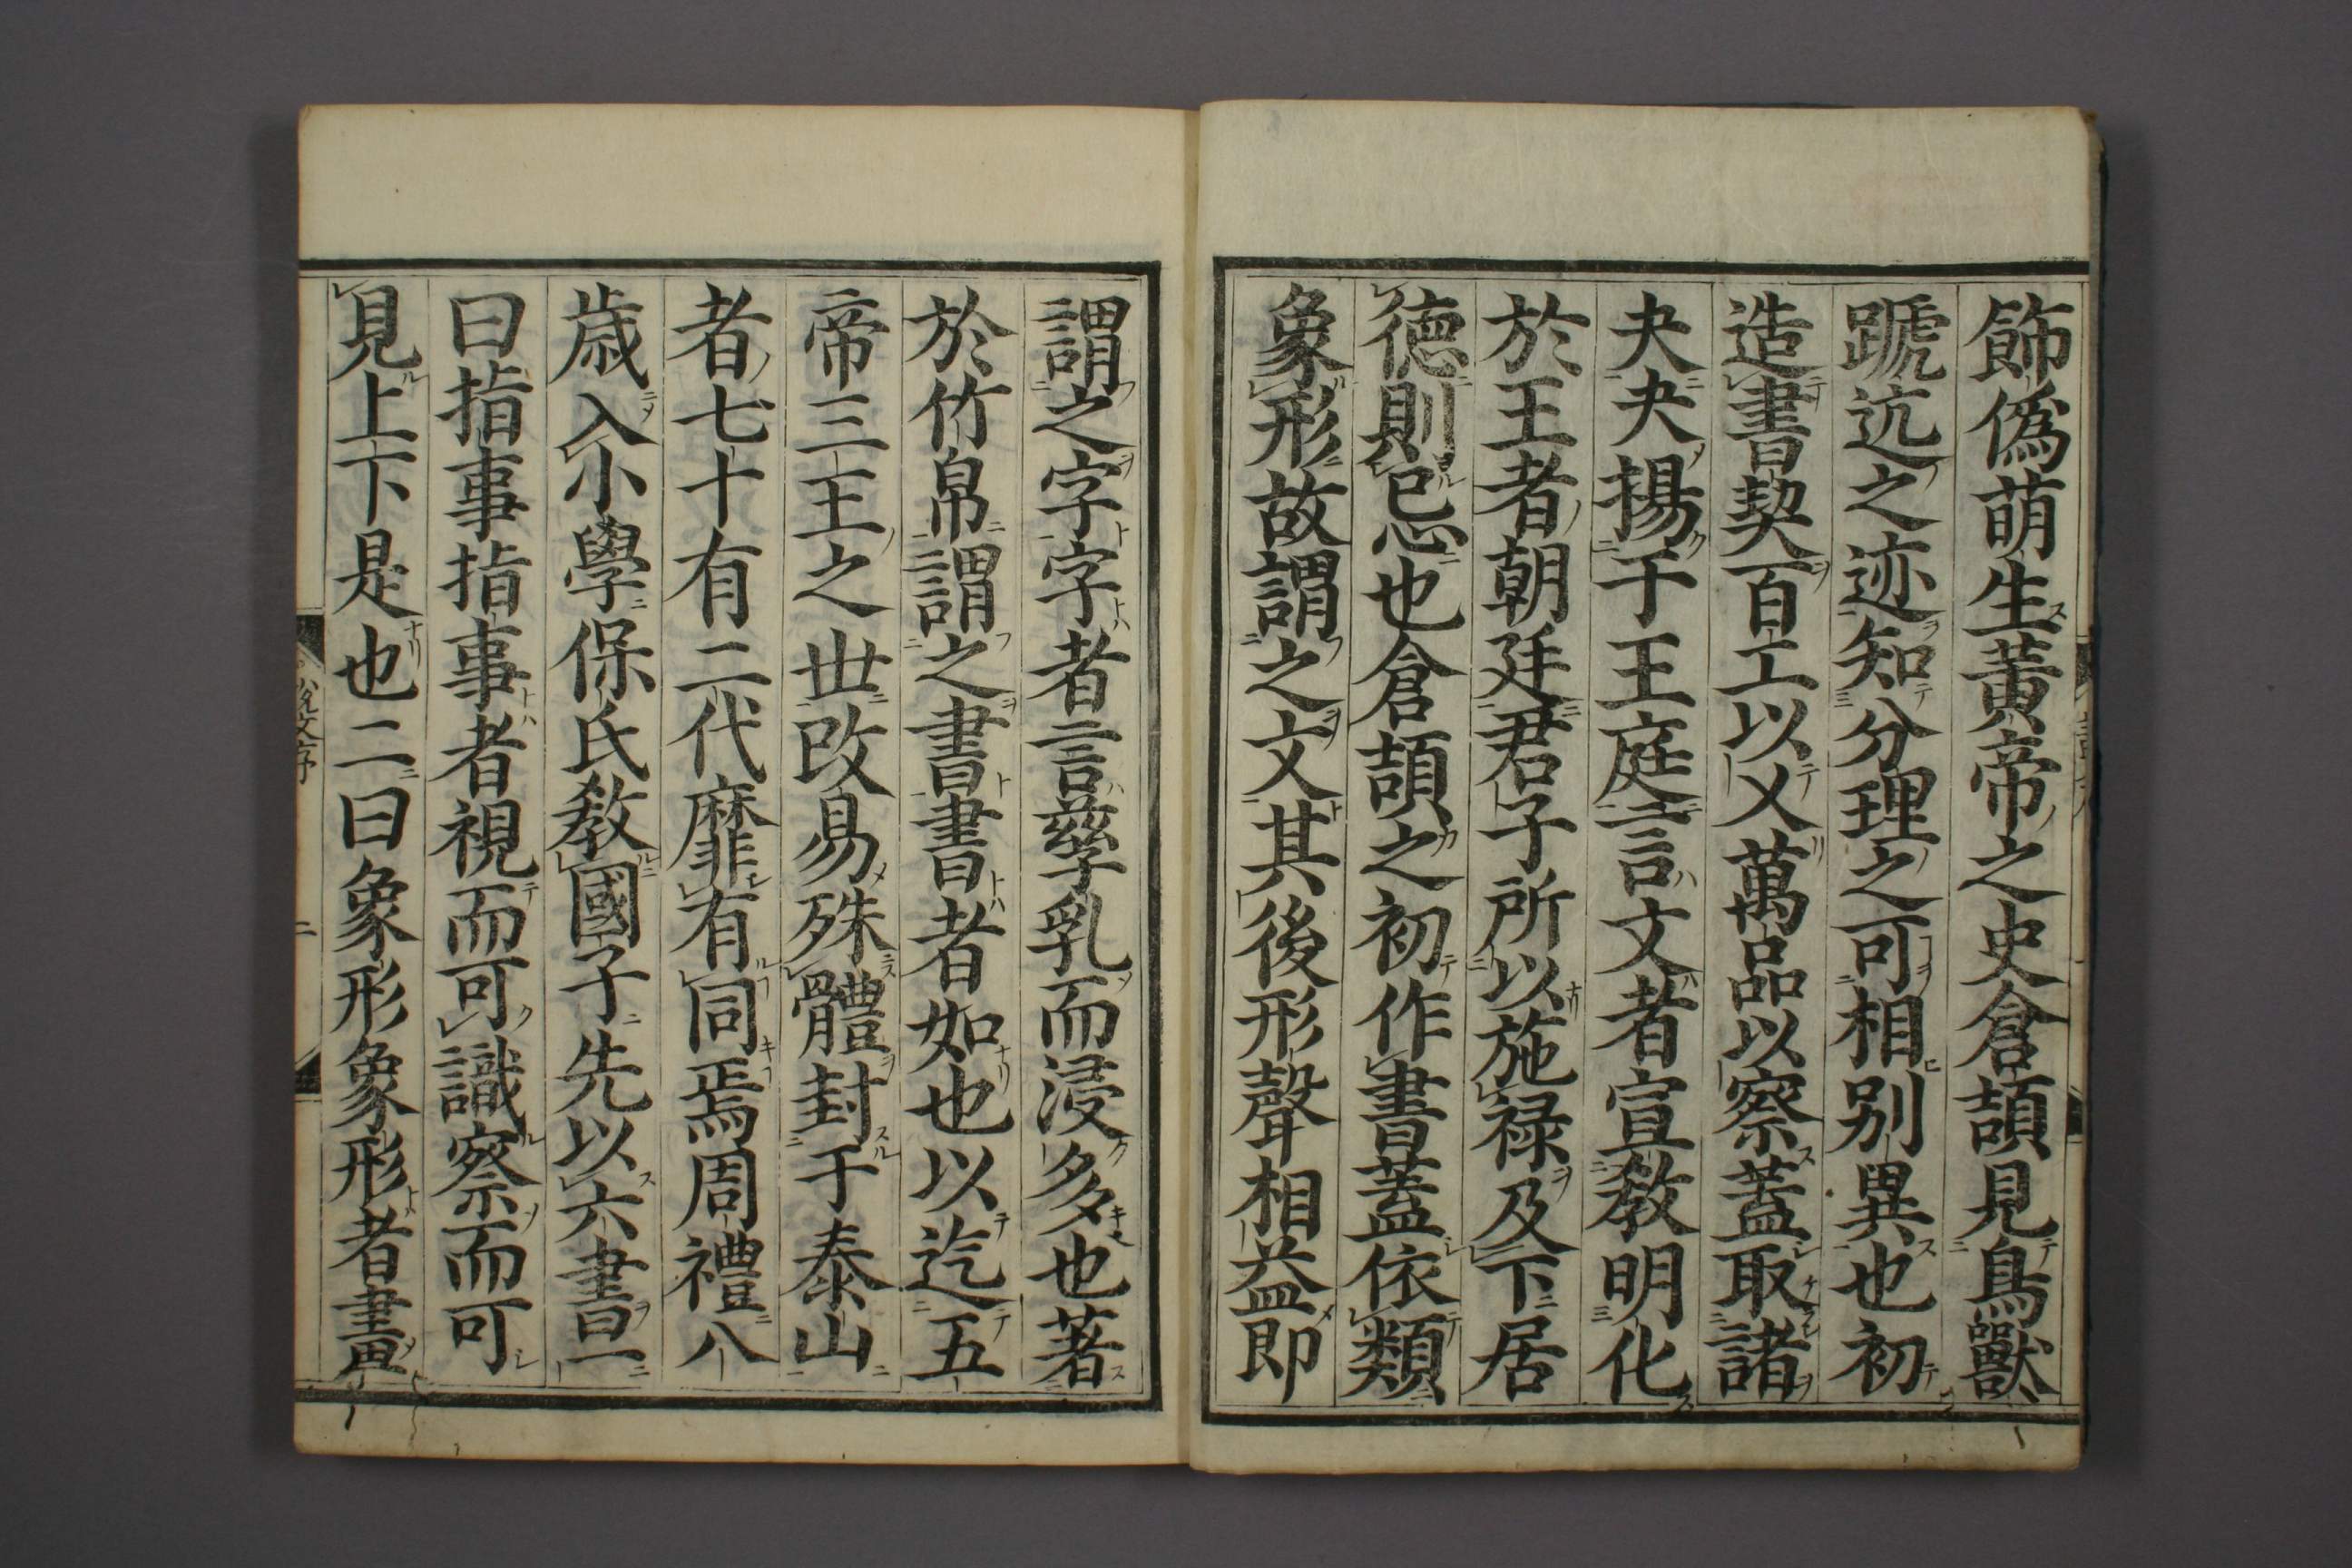 飾僞萌生黃帝之史倉頡見鳥獸
蹏迒之迹知分理之可相別異也初
造書契百工以乂萬品以察蓋取諸
夬夬揚于王庭言文者宣教明化
於王者朝廷君子所以施禄及下居
德則忌也倉頡之初作書蓋依類
象形故謂之文其後形聲相益即
謂之字字者言孳乳而浸多也著
於竹帛謂之書書者如也以迄五
帝三王之世改易殊體封于泰山
者七十有二代靡有同焉周禮八
歳入小學保氏教國子先以六書一
曰指事指事者視而可識察而可
見上下是也二曰象形象形者畫
說文序
二